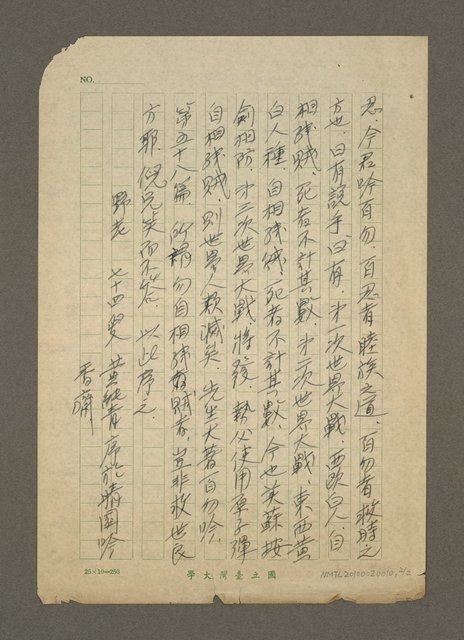 NO.
忍、今君吟百勿、百忍者睦族之道、百勿者救時之
方也、曰有説乎、曰有、第一次世界大戰、西歐白人、自
相殘賊、死者不計其數、第二次世界大戰、東西黃
白人種、自相殘賊、死者不計其數、今也美蘇按
劍相防、第三次世界大戰將發、勢必使用原子彈
自相殘賊、則世界人類滅矣、先生大著百勿吟、
第五十八篇、所謂勿自相殘賊者、豈非救世良
方耶、倪兄笑而不答、以此序之、
野老 七十四叟 黃純青序於晴園吟
香齋
25×10=250
國立臺灣大學
NMTL20100020010, 2/2